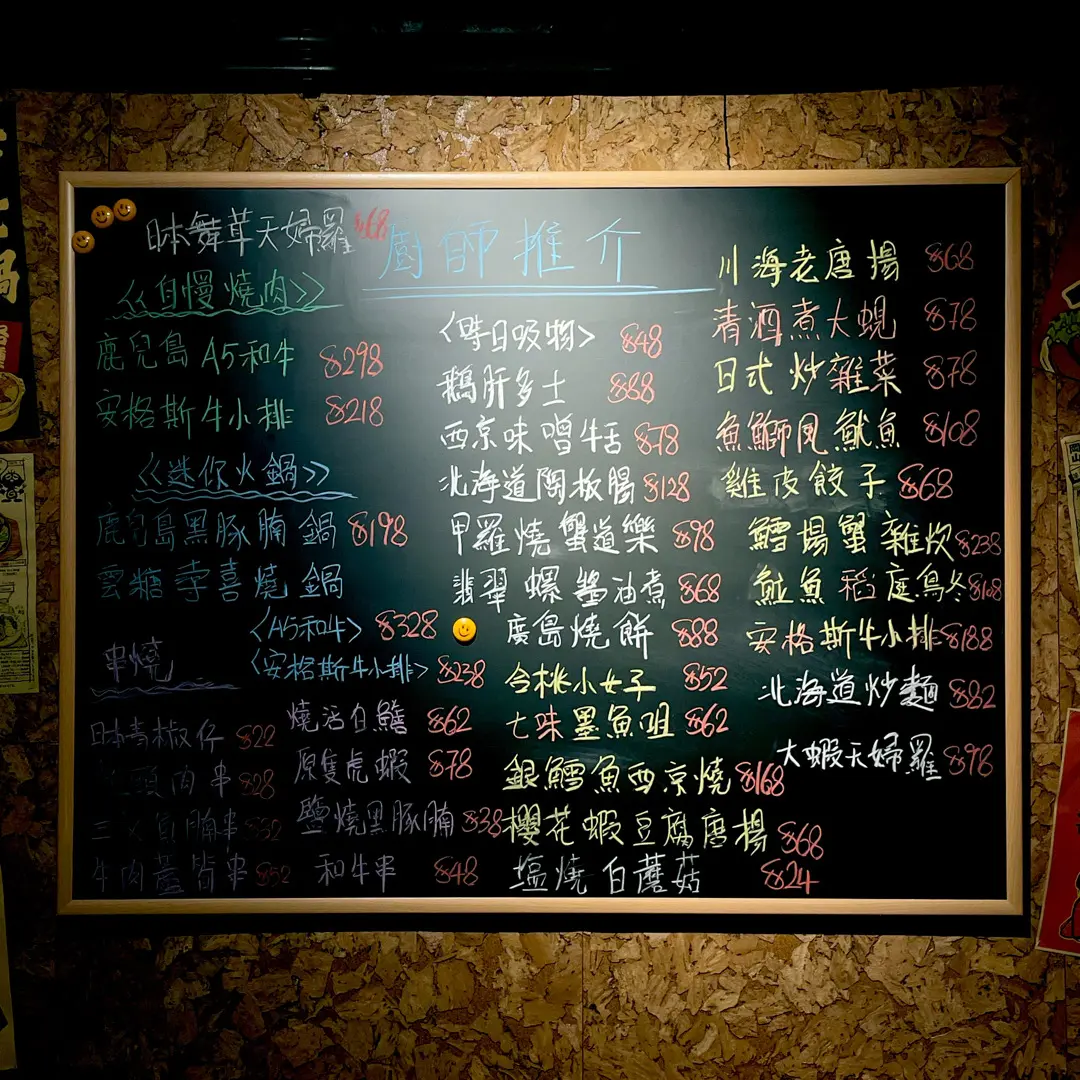 日本舞茸天婦羅 $68
廚師推介
<<自慢燒肉>>
鹿兒島 A5和牛 $298
安格斯牛小排 $218
<<迷你火鍋>>
鹿兒島黑豚腩鍋 $198
雲糖 壽喜燒鍋
<A5和牛> $328
<安格斯牛小排> $238
串燒
日本青椒仔 $22
肉串 $28
三文魚腩串 $52
牛肉 串 $52
燒活白鱔 $62
原隻虎蝦 $78
鹽燒黑豚腩 $38
和牛串 $48
<時日吸物> $48
鵝肝多士 $88
西京味噌牛舌 $78
北海道陶板腸 $128
甲羅燒蟹道樂 $98
翡翠螺醬油煮 $68
廣島燒餅 $88
合桃小女子 $52
七味墨魚咀 $62
銀鱈魚西京燒 $168
櫻花蝦豆腐唐揚 $68
塩燒白蘑菇 $24
川海老唐揚 $68
清酒煮大蜆 $78
日式炒雜菜 $78
魚鰤風魷魚 $108
雞皮餃子 $68
鱈場蟹雜炊 $238
魟魚稻庭烏冬 $108
安格斯牛小排 $188
北海道炒麵 $82
大蝦天婦羅 $98